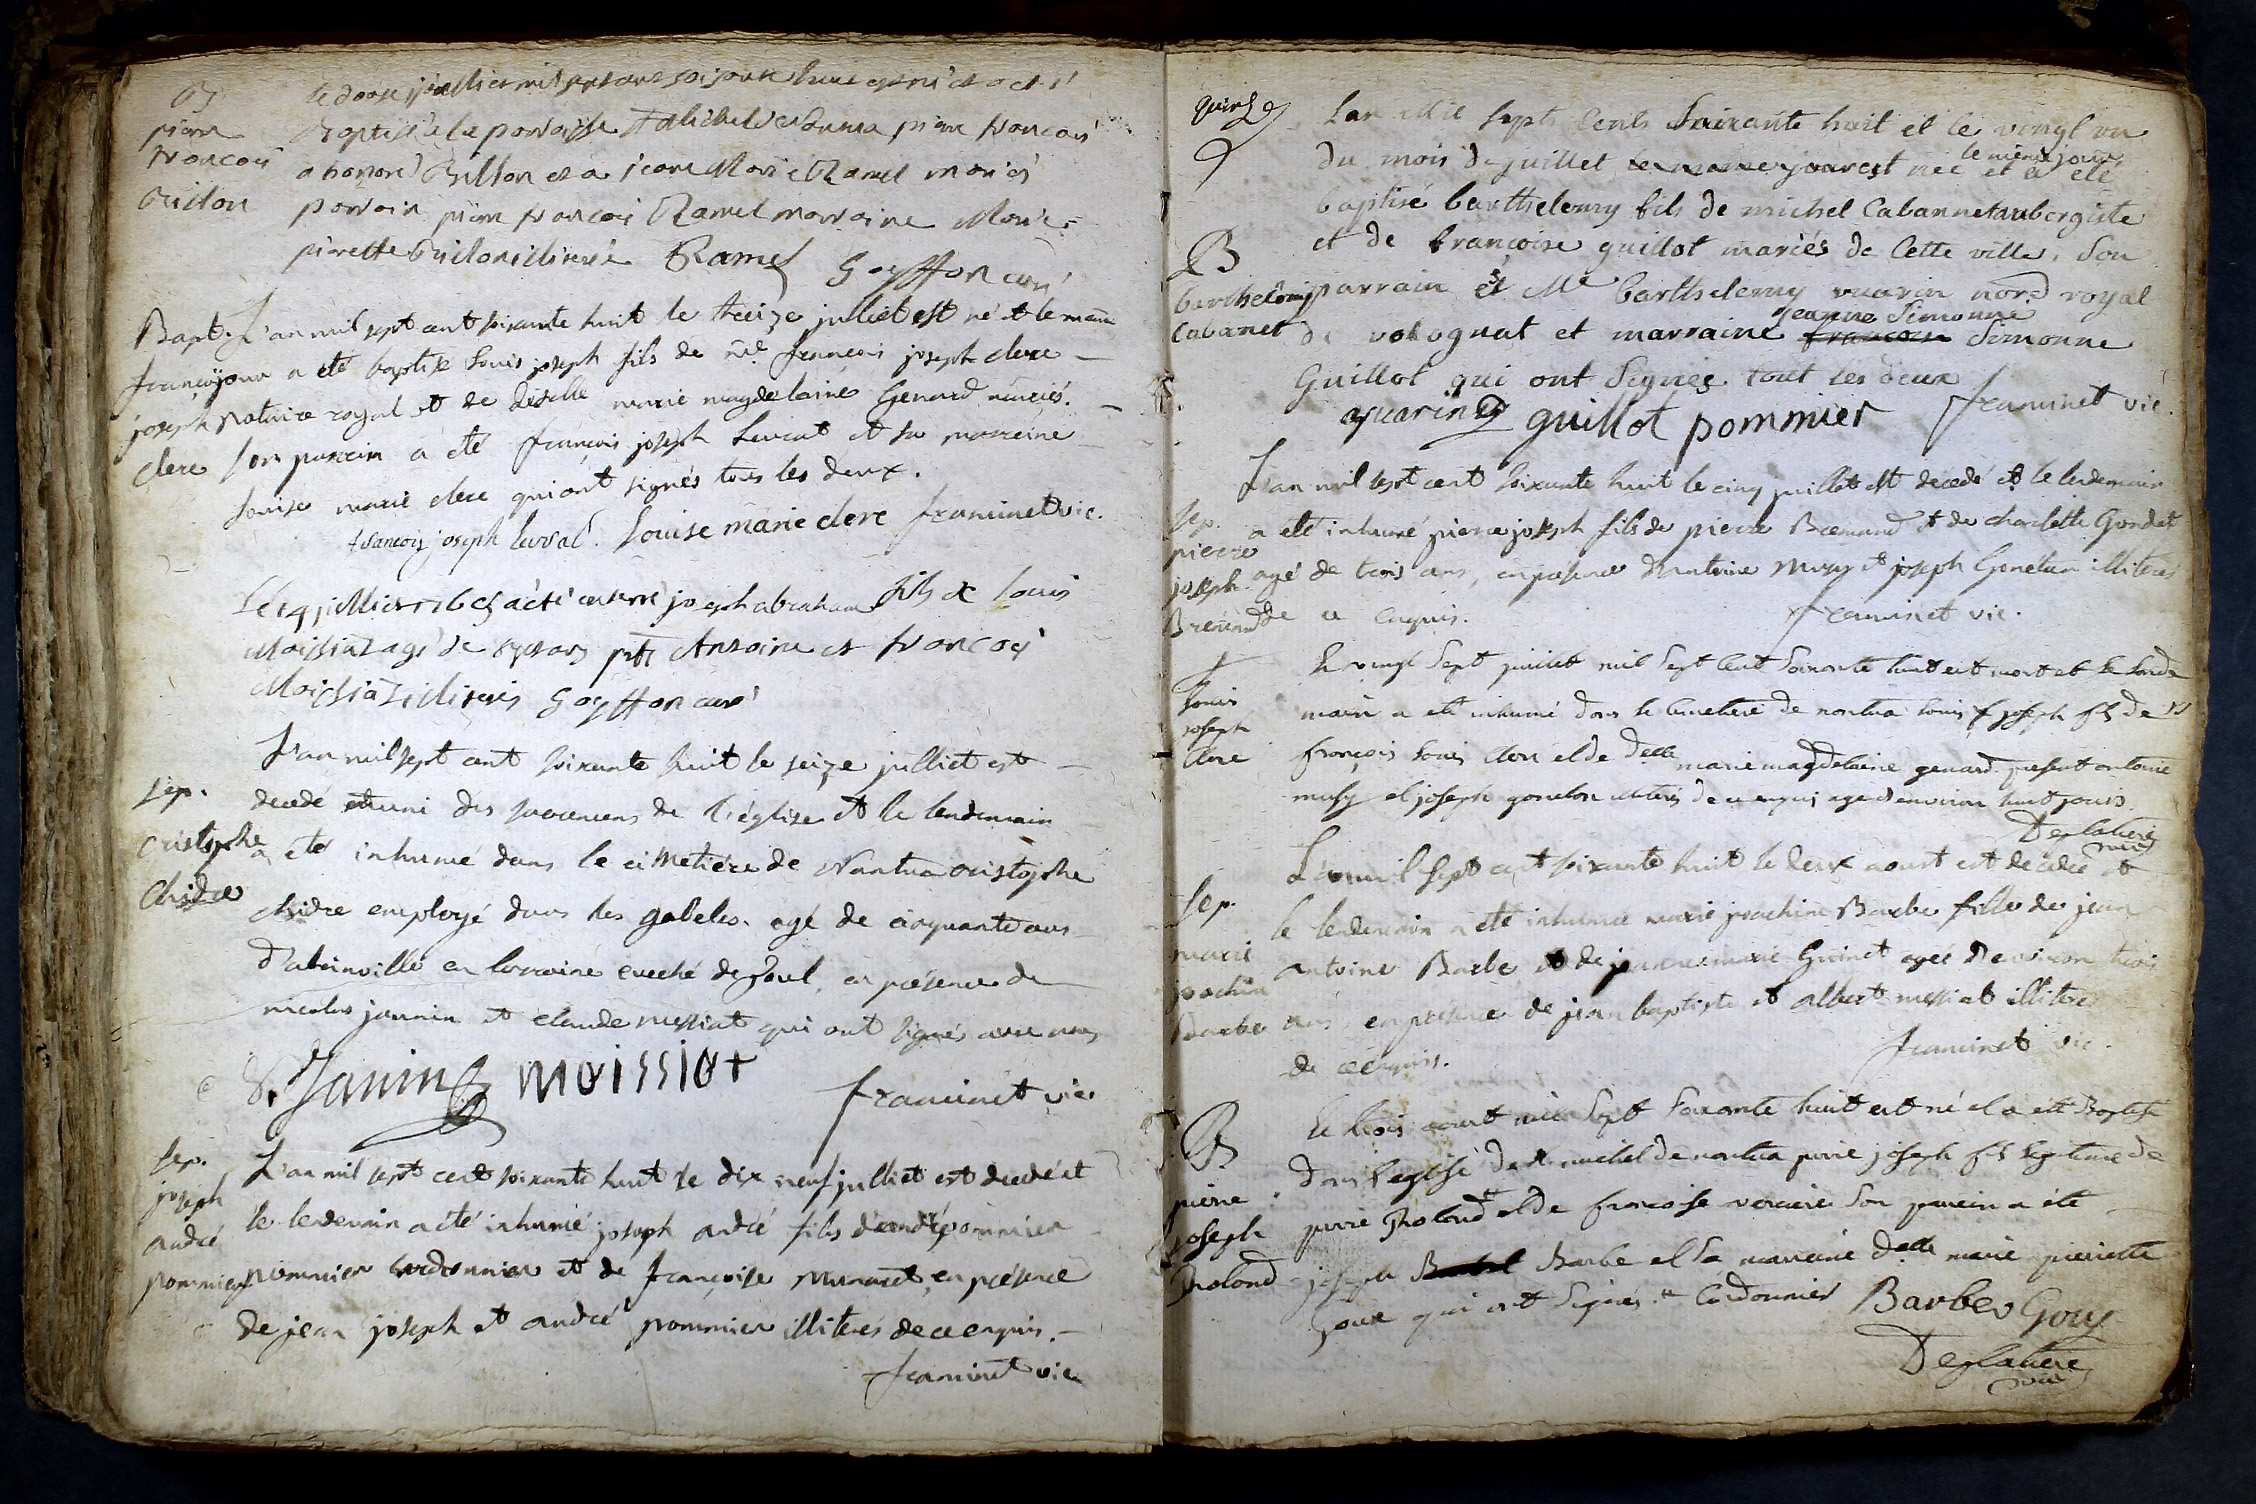 pierre
francois
Guillon
le douze juillier mil sept cent soisante huit est né et a été
Baptisé a la paroisse St Michel de nantua pierre francois
a honoré Guillon et a jeane Marie Ramel mariés
parrain pierre francois Ramel marraine Marie
pierrette Guillon illiterée Ramel Goyffon curé
Bapt. L'an mil sept cent soixante huit le treize julliet est né et le meme
françois jour a été baptisé Louis joseph fils de me françois joseph clerc
joseph notaire royal et de dlle marie magdelaine Genard mariés.
clerc son parrain a été françois joseph Levrat et sa marreine
Louise marie clerc qui ont signés tous les deux.
francois joseph levrat. Louise marie clerc framinet vic.
Le 14 juillier 1768 a été enterré joseph abraham fils de Louis
Moissiat agé de ans pnt Antoine et francois
Moissiat illiterés Goyffon curé
L'an mil sept cent soixante huit le seize julliet est
sep. decedé muni des sacremens de l'église et le lendemain
cristophe a été inhumé dans le cimetière de Nantua cristophe
chidre
chidre employé dans les gabeles. agé de cinquante ans
en lorraine eveché de Toul, en présence de
nicolas jannin et claude messiat qui ont signés avec nous
Janin moissiat
framinet vic.
Sep. L'an mil sept cent soixante huit le dix neuf julliet est decedé et
joseph
andré
pommier
le lendemain a été inhumé joseph andré fils d'andré pommier
pommier cordonnier et de françoise Munaret, en présence
de jean joseph et andré pommier illiterés de ce enquis.
framinet vic
quinze
Lan Mil sept Cents Soixante huit et le vingt un
du mois de juillet le meme jour est neé et a eté
le meme jour
baptisé barthelemy fils de michel Cabannet aubergiste
B et de francoise guillot mariés de Cette ville, Son
barthelemy parrain est Me barthelemy vuarin nore royal
Cabanet de volognat et marraine francoise Simonne
jeanne Simonne
Guillot qui ont Signés tout les deux
vuarin guillot pommier framinet vic.
L'an mil sept cent soixante huit le cinq juillet est décedé et le lendemain
sep.
pierre
joseph
Brenand
a été inhumé pierre joseph fils de pierre Brenand et de charlotte Gondet
agé de trois ans, en présence d'antoine Musy et joseph Gonelun illiterés
de ce enquis. framinet vic.
Le vingt Sept juillet mil Sept Cent Soixante huit est mort et le lende
Louis
joseph
clere
main a eté inhumé dans le cimetiere de nantua louis joseph fils de
françois louis clerc et de delle marie magdelaine genard present antoine
musy et joseph gonelon illiterés de ce enquis agé d'environ huit jours.
Deglatiere
vic
L'an mil sept cent soixante huit le deux aoust est decedée et
Sep.
marie
joachim
barbe
le lendemain a été inhumée marie joachine Barbe fille de jean
antoine Barbe et de jeanne marie Guinet agée d'environ trois
ans, en présence de jean baptiste et albert messiat illiterés
de ce enquis. framinet vic.
B
pierre
joseph
Roland
Le trois aoust mil Sept Soixante huit est né et a eté Baptisé
dans l'eglise de st michel de nantua pierre joseph fils legitime de
pierre Roland et de francoise son parrein a été
joseph Barbe et Sa marreine delle marie pierrette
Goux qui ont Signés. Cordonnier Barbe Goux
Deglatiere
vic